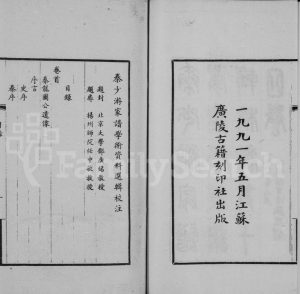 一九九一年五月江蘇
廣陵古籍刻印社出版
秦少游家譜學術資料選輯校注
題封 北京大學鄧廣銘教授
題卷 揚州師院任中敏教授
目錄
卷首
秦龍圖公遺像
序言
史序
秦序
FamilySearch